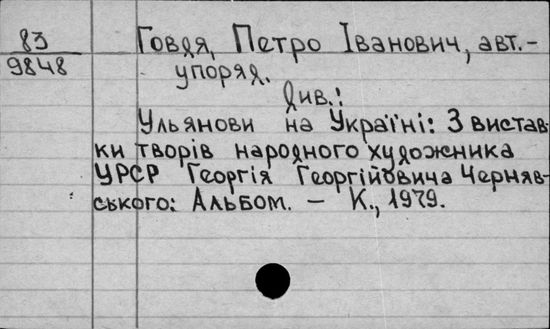 83
9848
Говдя, Петро Іванович, авт.-
упоряд.
Див.:
Ульянови на Україні: З вистав-
ки творів народного художника
УРСР Георгія Георгійовича Черняв-
ського: Альбом. – К., 1979.